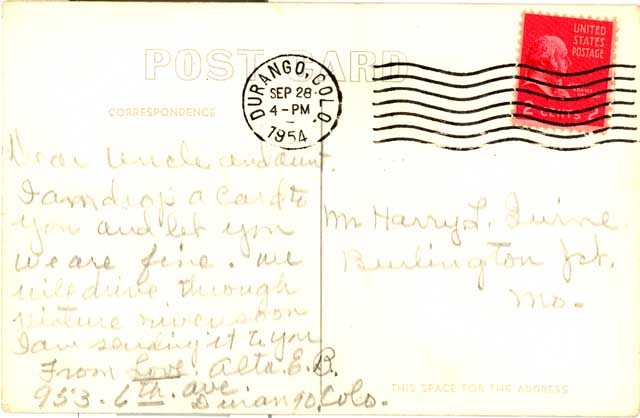 POST CARD
DURANGO, COLO.
SEP 28
4-PM
1954
UNITED
STATES
POSTAGE
ADAMS
2 CENTS 2
CORRESPONDENCE
Dear Uncle and aunt.
I am drop a card to
you and let you
we are fine. we
will drive through
picture river soon
I am sending it to you
From Love. Alta. E. B.
953. 6th. ave
Durango, Colo.
Mr Harry L.
Burlington Jct.
Mo.
THIS SPACE FOR THE ADDRESS